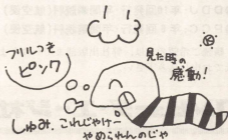 フリルつき
ピンク
見た時の
感動!
しゅみ.これじゃけー
やめられんのじゃ